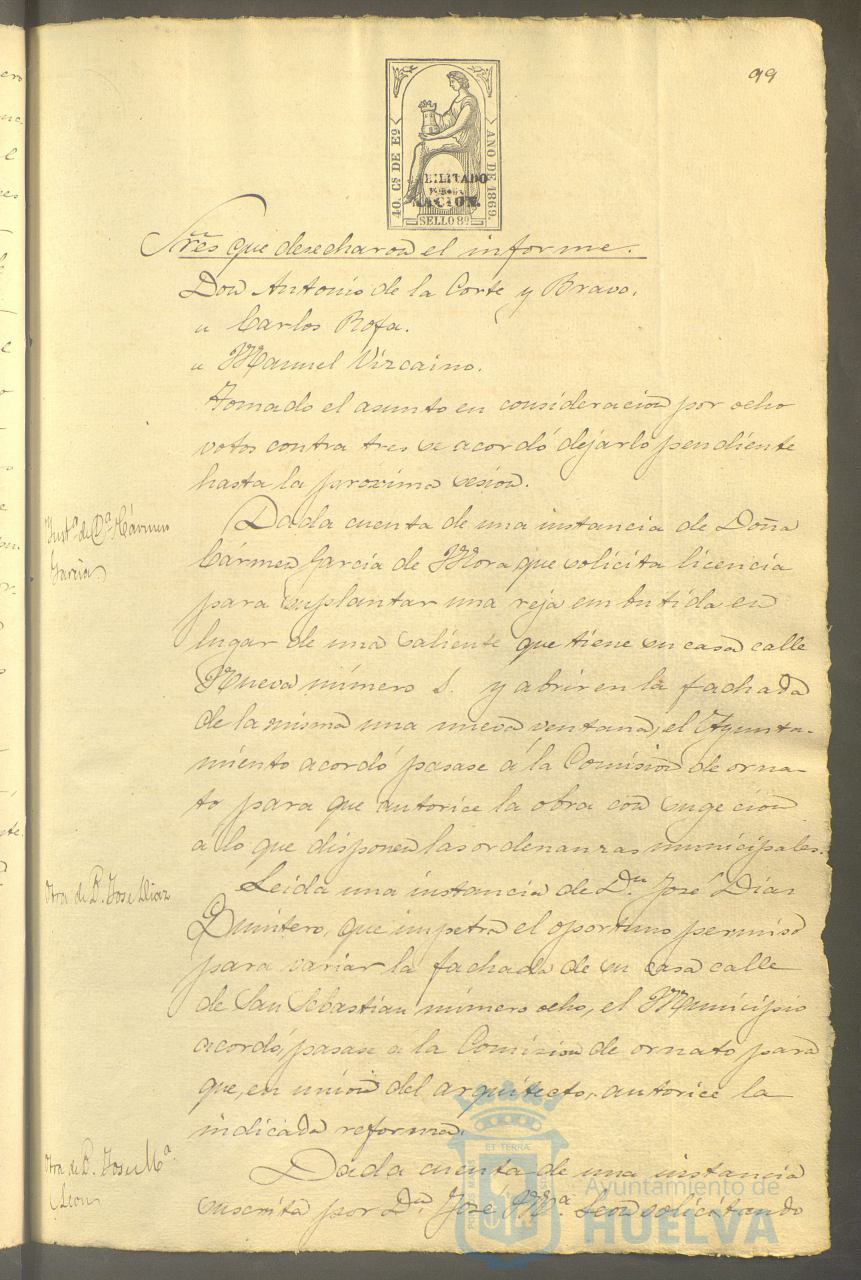 99
40. Cs DE Eº
AÑO DE 1869.
HABILITADO
POR LA
NACION.
SELLO 8º
Sres que desecharon el informe.
Don Antonio de la Corte y Bravo.
" Carlos Rofa.
" Manuel Vizcaino.
Tomado el asunto en consideracion por ocho
votos contra tres se acordó dejarlo pendiente
hasta la próxima sesion.
Instª de Dª Cármen
García
Dada cuenta de una instancia de Doña
Cármen García de Mora que solicita licencia
para suplantar una reja embutida en
lugar de una saliente que tiene su casa calle
Nueva número 1. y abrir en la fachada
de la misma una nueva ventana, el Ayunta-
miento acordó pasase á la Comision de orna-
to para que autorice la obra con sugecion
a lo que disponen las ordenanzas municipales.
Otra de D. Jose Diaz
Leida una instancia de Dn José Diaz
Quintero, que impetra el oportuno permiso
para variar la fachada de su casa calle
de San Sebastian número ocho, el Municipio
acordó, pasase á la Comision de ornato para
que, en union del arquitecto, autorice la
indicada reforma.
Otra de D. Jose Mª
Leon
Dada cuenta de una instancia
suscrita por Dn José Mª Leon solicitando
ET TERRÆ
Ayuntamiento de
HUELVA